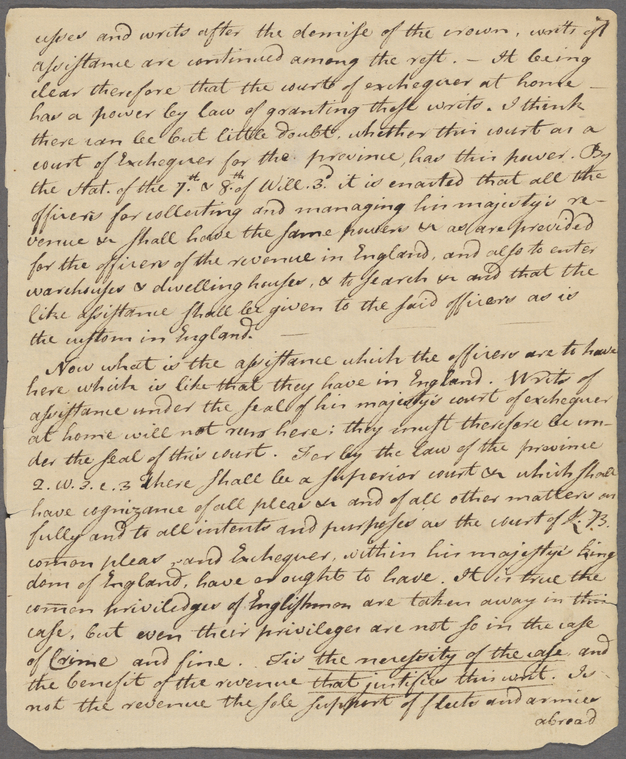 usses and writs after the demise of the crown, writs of
assistance are continued among the rest. – It being
clear therefore that the court of exchequer at home –
has a power by law of granting these writs. I think
there can be but little doubt, whether this court as a
court of Exchequer for the province, has this power. By
the Stat. of the 7.th & 8.th of Will. 3.d it is enacted that all the
officers for collecting and managing his majesty's re-
venue &c shall have the same powers &c as are provided
for the officers of the revenue in England, and also to enter
warehouses & dwelling houses, & to search &c and that the
like assistance shall be given to the said officers as is
the custom in England. —
Now what is the assistance which the officers are to have
here, which is like that they have in England. Writs of
assistance under the seal of his majesty's court of exchequer
at home will not run here; they must therefore be un-
der the seal of this court. For by the law of the province
2. W. 3. c. 3 there shall be a superior court &c which shall
have cognizance of all pleas &c and of all other matters as
fully and to all intents and purposes as the court of K. B.
comon pleas, and Exchequer, within his majesty's king
dom of England, have or ought to have. It is true the
comon priviledges of Englishmen are taken away in this
case, but even their privileges are not so in the case
of Crime and fine. Tis the necessity of the case and
the benefit of the revenue that justifies this writ. Is
not the revenue the sole support of fleets and armies
abroad